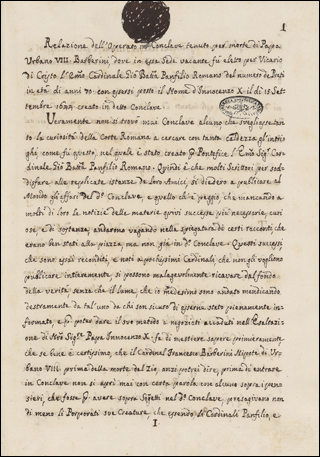 1
Relazione dell'Operato in Conclave tenuto per morte di Papa
Urbano VIII. Barberini, dove in essa Sede vacante fù eletto per Vicario
di Cristo l'Emo Cardinale Gio: Batta Panfilio Romano del numero de Preti
in età di anni 70. con essersi posto il Nome d'Innocenzo X. il dì 15 Set-
tembre creato in detto Conclave.
Veramente non si trovò mai Conclave alcuno, che svegliasse tan-
to la curiosità della Corte Romana a cercare con tanta caldezza gl'intri-
ghi, come fù questo, nel quale è stato creato Pontefice l'Emo Sig. Car-
dinale Gio: Batta Panfilio Romano. Quindi è che molti Scrittori per sod-
disfare alle replicate istanze de loro Amici, si diedero a publicare al
Mondo gli affari del do Conclave, e quello ch'è peggio, che mancando a
molti di loro le notizie delle materie quivi successe più necessarie, curi-
ose, e di sostanza, andarono vagando nella spiegatura de certi racconti che
erano ben stati alla piazza, ma non già in do Conclave. Questi successi
che sono assai reconditi, e noti a pochissimi Cardinali, che non gli vogliono
publicare intieramente, si possono malagevolmente ricavare dal fondo
della verità senza che il lume, che io medesimo sono andato mendicando
destramente da tal'uno da chi son sicuro di esserne stato pienamente in-
formato, e per poter dare il suo metodo a negozii accaduti nell'Esaltazi-
one di Nro Sigre Papa Innocenzo X. fa di mestiere sapere primieramente,
che se bene è certissimo, che il Cardinal Francesco Barberini Nipote di Ur-
bano VIII. prima della morte del Zio, anzi potrei dire, prima di entrare
in Conclave non si aprì mai con certa parola con alcuno sopra i pensi-
eri, che fosse per avere sopra Sogetti nel do Conclave, presagivano non
di meno li Porporati sue Creature, che essendo il Cardinale Panfilio, e
I